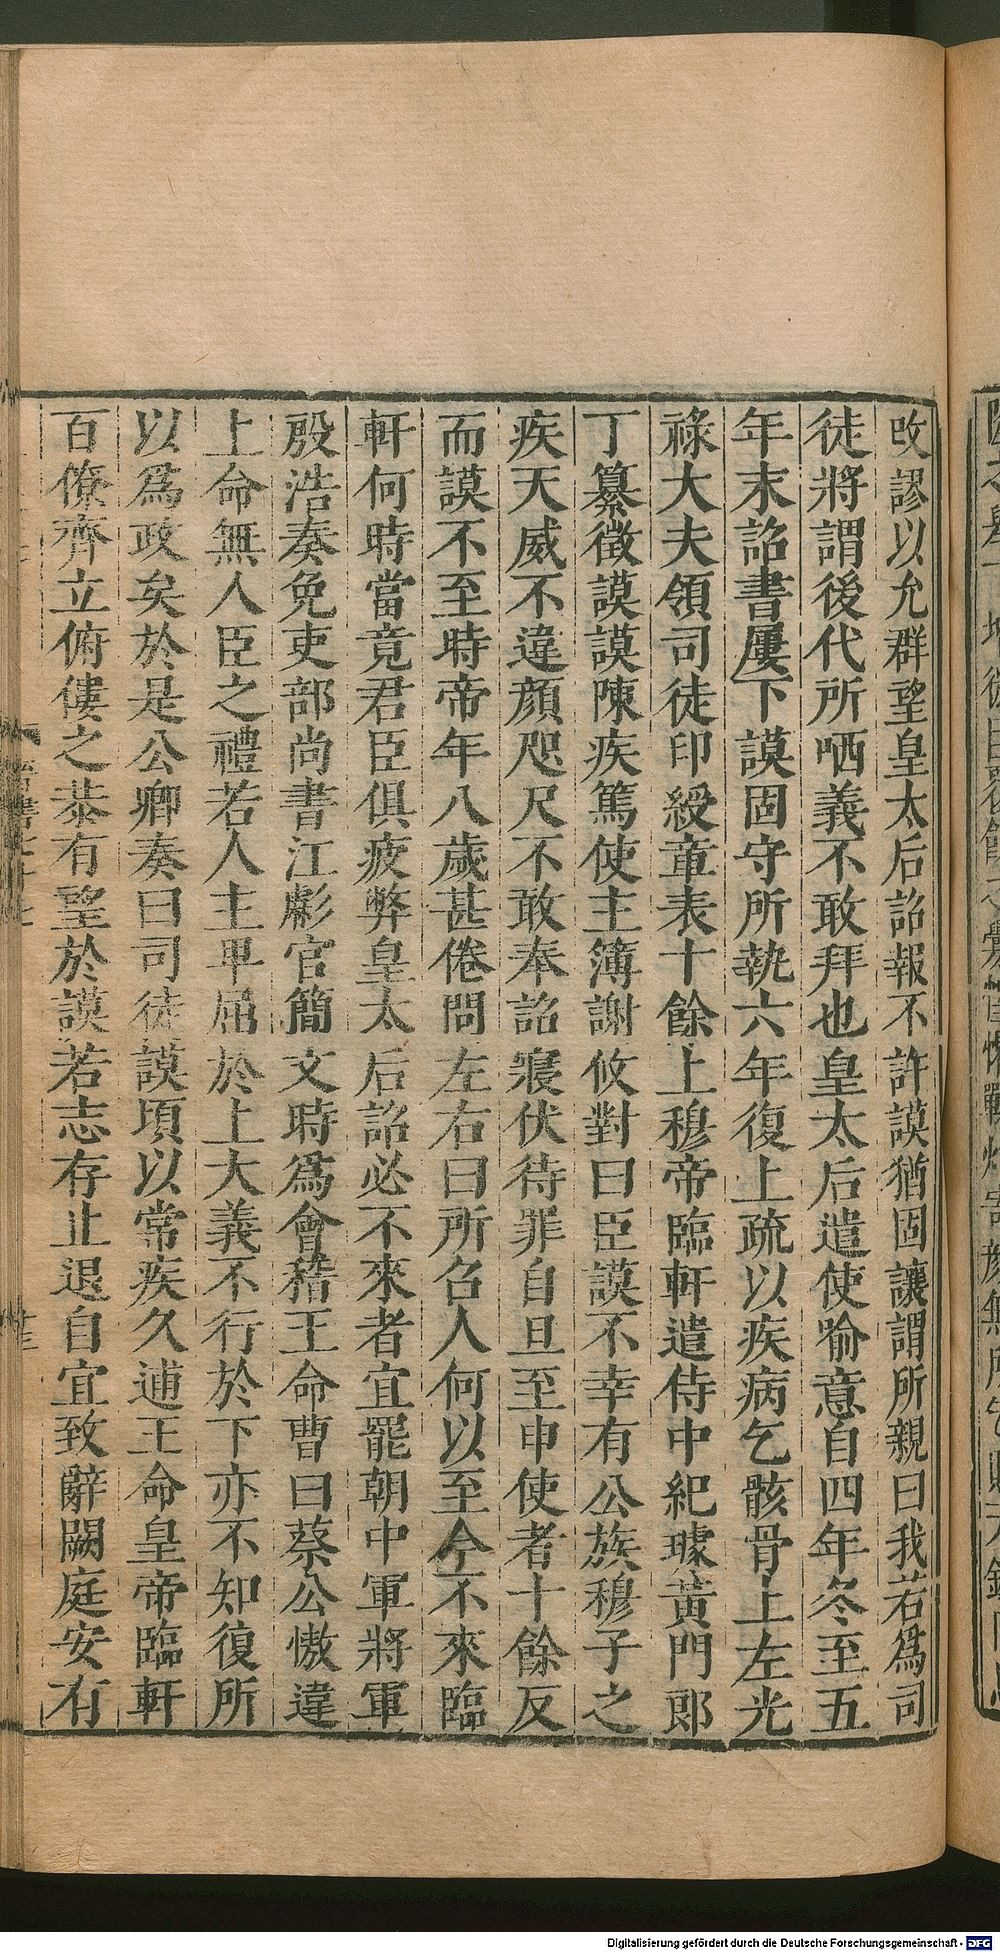 改謬以允群望皇太后詔報不許謨猶固讓謂所親曰我若爲司
徒將謂後代所哂義不敢拜也皇太后遣使喻意自四年冬至五
年末詔書屢下謨固守所執六年復上疏以疾病乞骸骨上左光
祿大夫領司徒印綬章表十餘上穆帝臨軒遣侍中紀璩黃門郎
丁纂徵謨謨陳疾篤使主簿謝攸對曰臣謨不幸有公族穆子之
疾天威不違顏咫尺不敢奉詔寢伏待罪自旦至申使者十餘反
而謨不至時帝年八歲甚倦問左右曰所召人何以至今不來臨
軒何時當竟君臣俱疲弊皇太后詔必不來者宜罷朝中軍將軍
殷浩奏免吏部尚書江虨官簡文時爲會稽王命曹曰蔡公慠違
上命無人臣之禮若人主卑屈於上大義不行於下亦不知復所
以爲政矣於是公卿奏曰司徒謨頃以常疾久逋王命皇帝臨軒
百僚齊立俯僂之恭有望於謨若志存止退自宜致辭闕庭安有
Digitalisierung gefördert durch die Deutsche Forschungsgemeinschaft - DFG